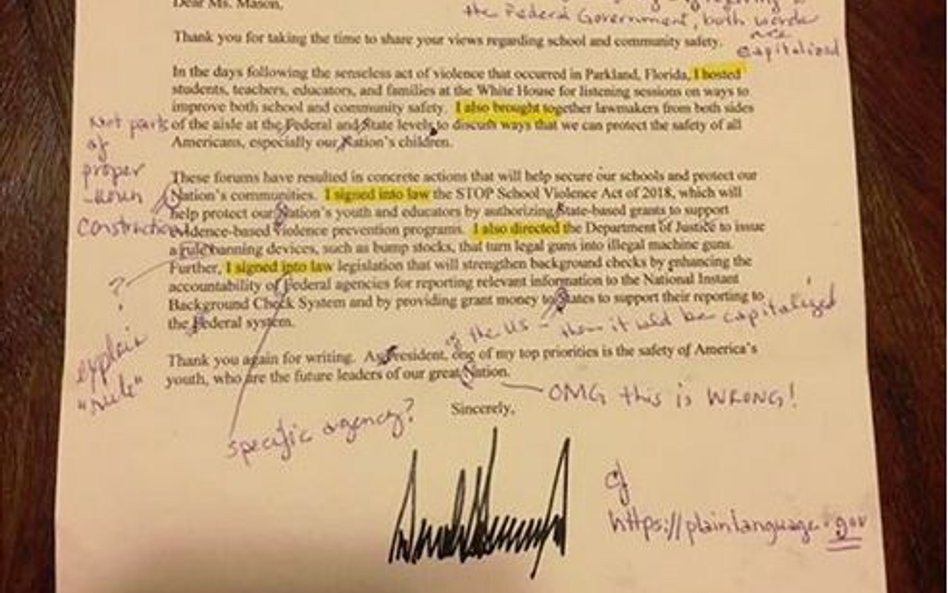 Dear Ms. Mason,
the Federal Government, both words
are
capitalized
Thank you for taking the time to share your views regarding school and community safety.
In the days following the senseless act of violence that occurred in Parkland, Florida, I hosted
students, teachers, educators, and families at the White House for listening sessions on ways to
improve both school and community safety. I also brought together lawmakers from both sides
of the aisle at the Federal and State levels to discuss ways that we can protect the safety of all
Americans, especially our Nation's children.
Not parts
of
proper
-noun
construction
These forums have resulted in concrete actions that will help secure our schools and protect our
Nation's communities. I signed into law the STOP School Violence Act of 2018, which will
help protect our Nation's youth and educators by authorizing State-based grants to support
evidence-based violence prevention programs. I also directed the Department of Justice to issue
a rule banning devices, such as bump stocks, that turn legal guns into illegal machine guns.
Further, I signed into law legislation that will strengthen background checks by enhancing the
accountability of Federal agencies for reporting relevant information to the National Instant
Background Check System and by providing grant money to States to support their reporting to
the Federal system.
?
explain
"rule"
of the US - then it wld be capitalized
Thank you again for writing. As President, one of my top priorities is the safety of America's
youth, who are the future leaders of our great Nation.
OMG this is WRONG!
Sincerely,
specific agency?
cf
https://plainlanguage.gov